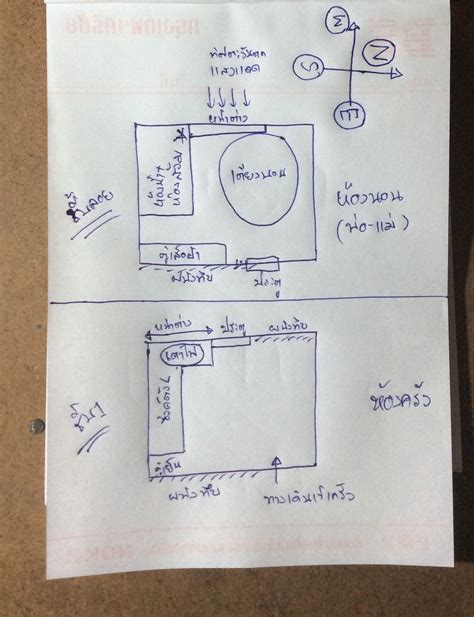 W
N
S
E
ทิศตะวันตก
แสงแดด
หน้าต่าง
ห้องน้ำ
ห้องส้วม
เตียงนอน
ตู้เสื้อผ้า
ผนังทึบ
ประตู
ห้องนอน
(พ่อ-แม่)
ชั้นลอย
หน้าต่าง
ประตู
ผนังทึบ
เตาไฟ
ซิงค์ตัว L
ตู้เย็น
ผนังทึบ
ทางเดินเข้าครัว
ห้องครัว
ชั้น 1